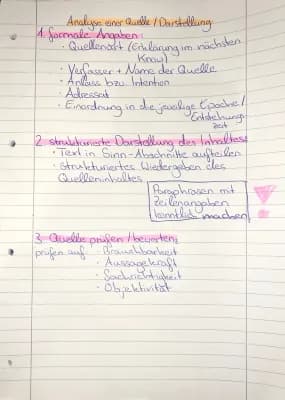 Analyse einer Quelle / Darstellung
1. formale Angaben:
• Quellenart (Erklärung im nächsten
Know)
• Verfasser + Name der Quelle
• Anlass bzw. Intention
• Adressat
• Einordnung in die jeweilige Epoche /
Entstehungs
zeit
2. strukturierte Darstellung des Inhaltes:
• Text in Sinn-Abschnitte aufteilen
• strukturiertes Wiedergeben des
Quelleninhaltes
Paraphrasen mit
Zeilenangaben
kenntlich machen
3. Quelle prüfen / bewerten:
prüfen auf: • Brauchbarkeit
• Aussagekraft
• Sachrichtigkeit
• Objektivität